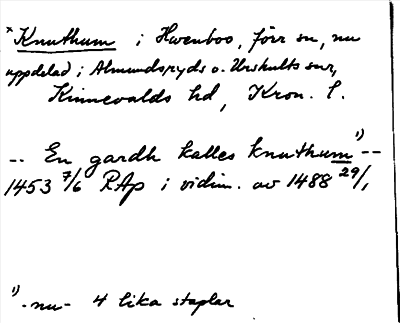 * Knuthum i Hwenboo, förr sn, nu
uppdelad i Almundsryds o. Urshults snr,
Kinnevalds hd, Kron. l.
-- En gardh kalles knuthum ¹) --
1453 7/6 RAp i vidim. av 1488 29/1
¹) -nu- 4 lika staplar